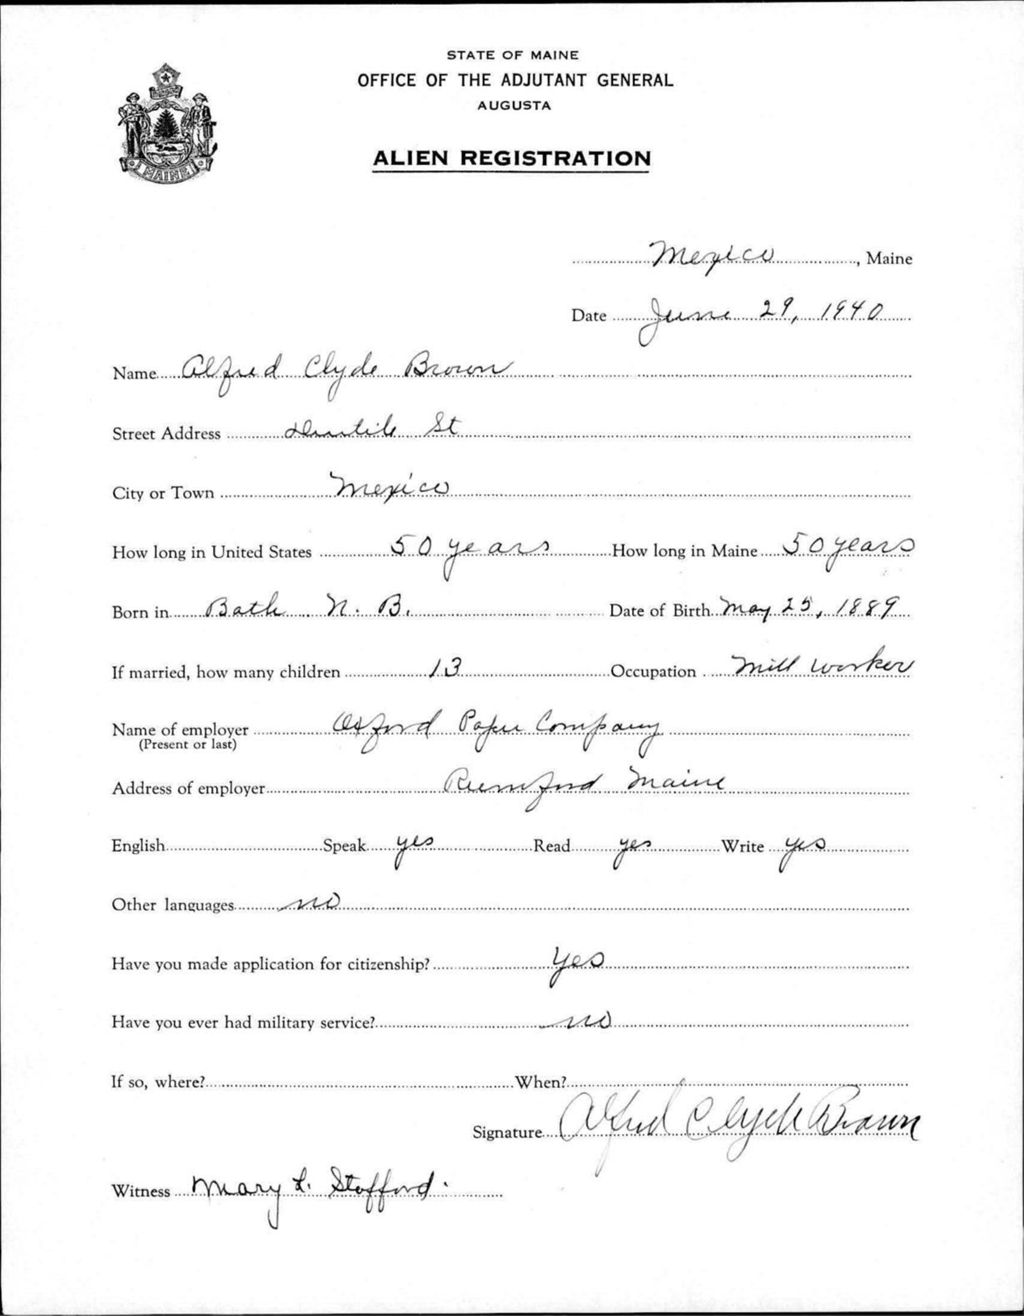 STATE OF MAINE
OFFICE OF THE ADJUTANT GENERAL
AUGUSTA
ALIEN REGISTRATION
MAINE
Mexico, Maine
Date June 29, 1940
Name Alfred Clyde Brown
Street Address St
City or Town Mexico
How long in United States 50 years How long in Maine 50 years
Born in Bath N. B. Date of Birth May 25, 1889
If married, how many children 13 Occupation Mill worker
Name of employer Oxford Paper Company
(Present or last)
Address of employer Rumford Maine
English Speak yes Read yes Write yes
Other languages no
Have you made application for citizenship? Yes
Have you ever had military service? no
If so, where? When?
Signature Alfred Clyde Brown
Witness Mary L. Stofford.